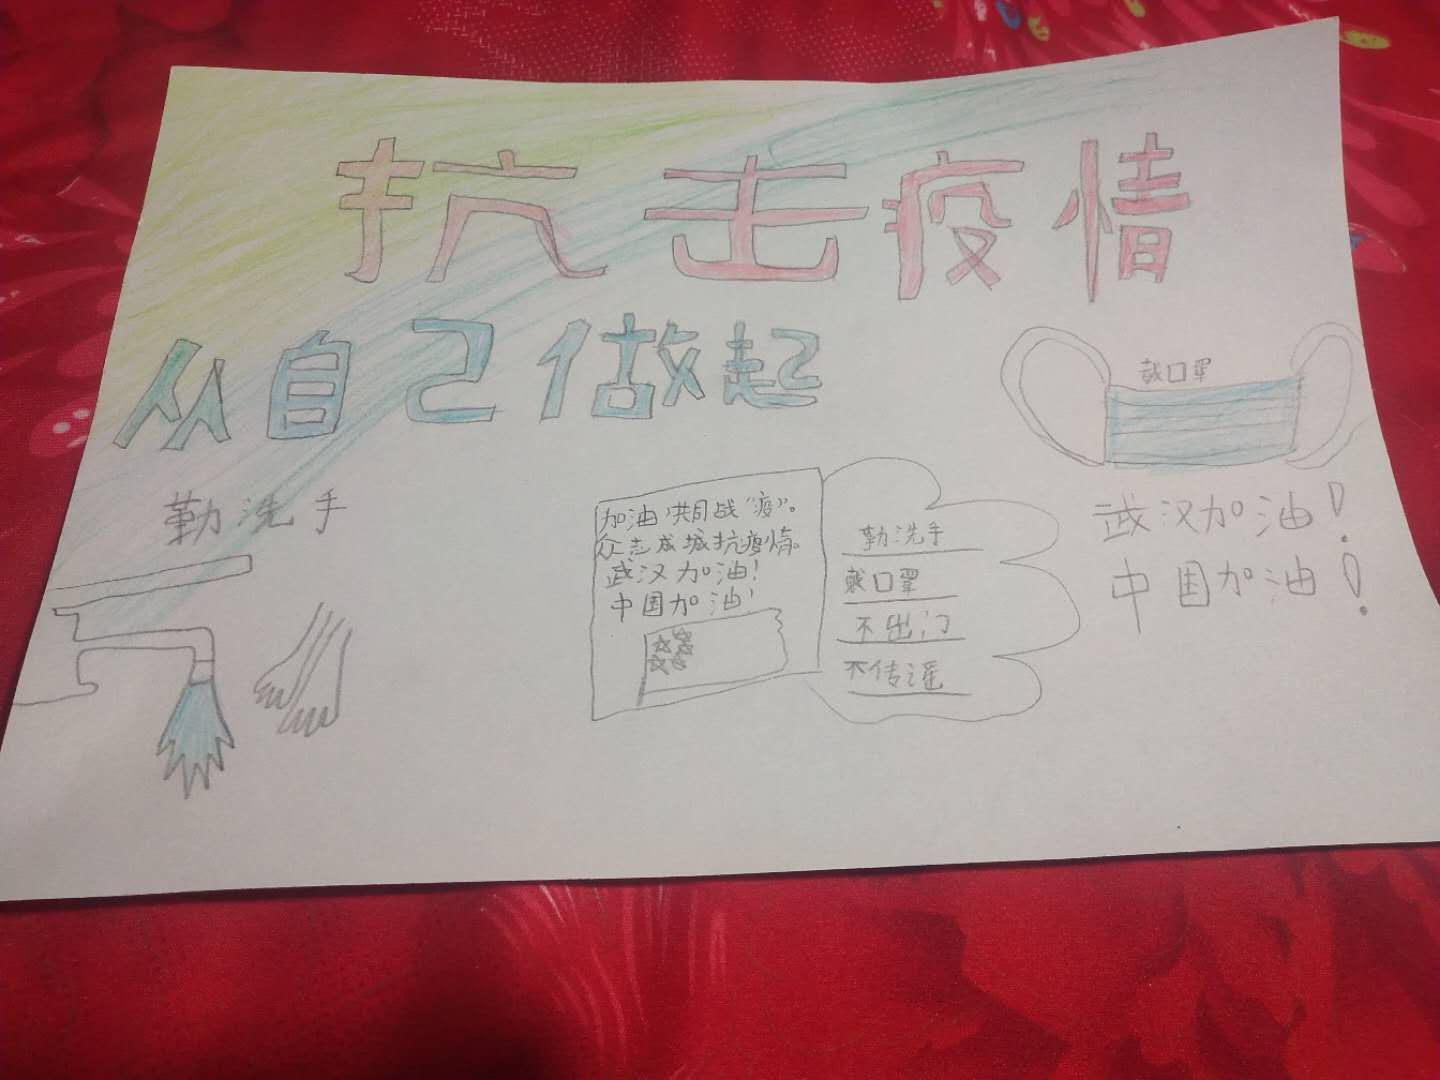 抗击疫情
从自己做起
戴口罩
勤洗手
加油,共同战“疫”。
众志成城抗疫情。
武汉加油!
中国加油!
勤洗手
戴口罩
不出门
不传谣
武汉加油!
中国加油!